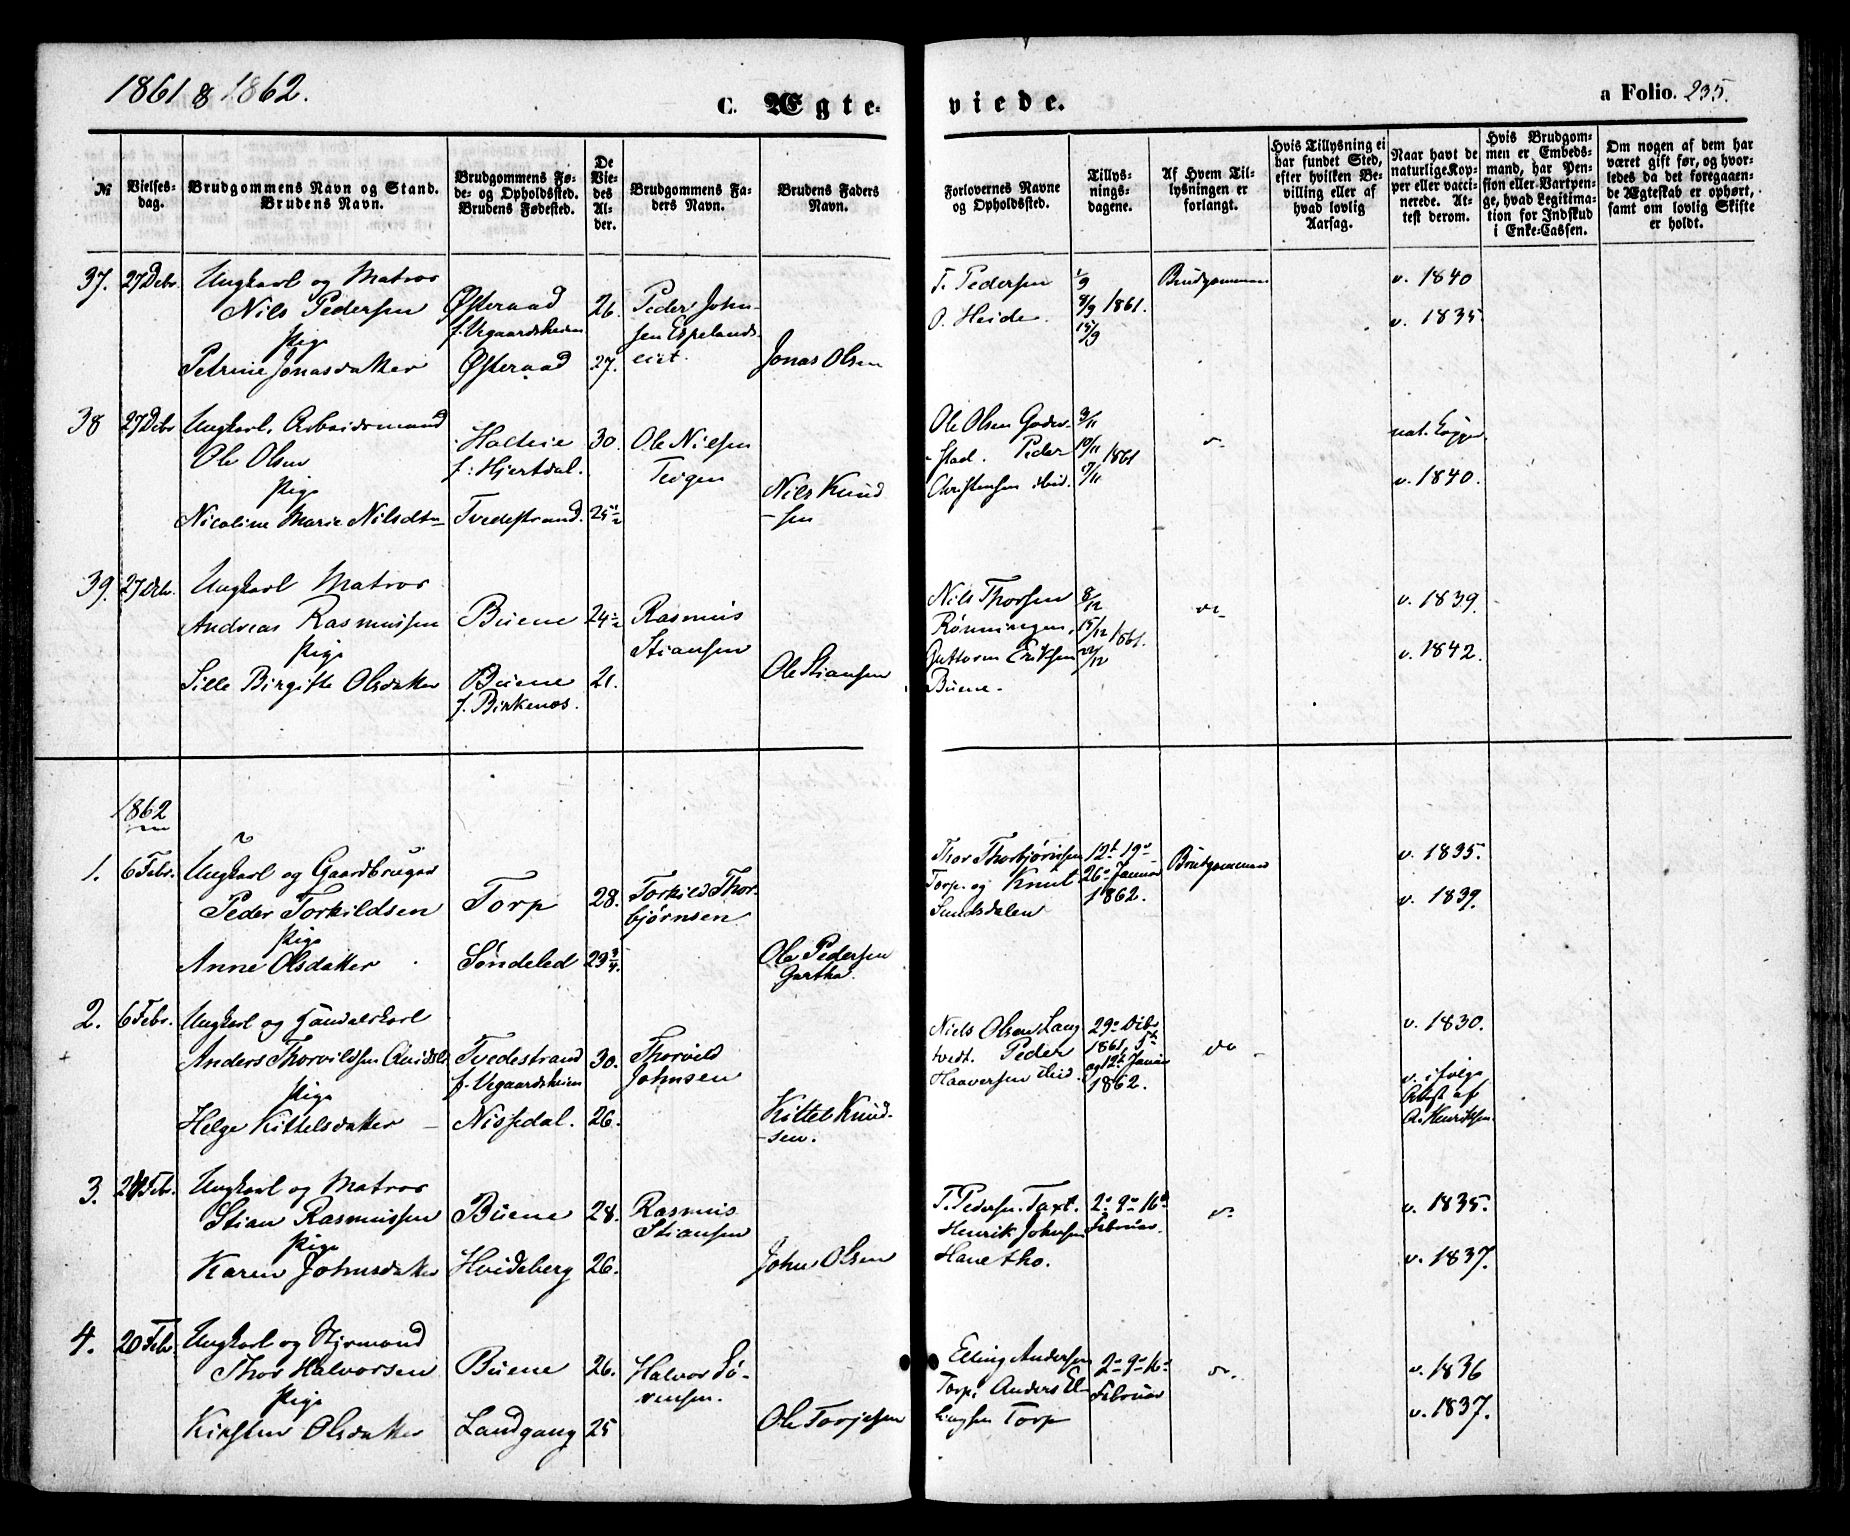 1861 & 1862.
C. Ægte- viede.
a Folio. 235.
No
Vielses-
dag.
Brudgommens Navn og Stand.
Brudens Navn.
Brudgommens Fø-
de- og Opholdssted.
Brudens Fødested.
De
Vie-
des
Al-
der.
Brudgommens Fa-
ders Navn.
Brudens Faders
Navn.
Forlovernes Navne
og Opholdssted.
Tillys-
nings-
dagene.
Af Hvem Til-
lysningen er
forlangt.
Hvis Tillysning ei
har fundet Sted,
efter hvilken Be-
villing eller af
hvad lovlig
Aarsag.
Naar havt de
naturlige Kop-
per eller vacci-
nerede. At-
test derom.
Hvis Brudgom-
men er Embeds-
mand, har Pen-
sion eller Vartpen-
ge, hvad Legitima-
tion for Indskud
i Enke-Cassen.
Om nogen af dem har
været gift før, og hvor-
ledes da det foregaaen-
de Ægteskab er ophørt,
samt om lovlig Skifte
er holdt.
37. 27 Debr. Ungkarl og Matros
Nils Pedersen
Pige
Petrine Jonasdatter
Østeraad
f. Vegaardsheien
Østeraad
26.
27.
Peder John-
sen Espelands-
eiet.
Jonas Olsen
T. Pedersen
O. Heide.
1/9
8/9 1861.
15/9
Brudgommen
v. 1840
v. 1835.
38 27 Debr Ungkarl, Arbeidsmand
Ole Olsen
Pige
Nicoline Marie Nilsdtr
f. Hjertdal.
Tvedestrand.
30.
25 1/2
Ole Nilsen
Teigen
Nils Knud
-sen
Ole Olsen Goder-
-stad. Peder
Christensen ibid.
3/11
10/11 1861
17/11
nat. Kopper.
v. 1840.
39. 27 Debr. Ungkarl Matros
Andreas Rasmussen
Pige
Sille Birgitte Olsdatter
Büene
Büene
f. Birkenes.
24 1/2
21.
Rasmus
Stiansen
Ole Stiansen
Nils Thorsen
Rønningen,
Guttorm Eriksen
Büene.
8/12
15/12 1861.
22/12
v. 1839.
v. 1842.
1862
1. 6 Febr. Ungkarl og Gaardbruger
Peder Torkildsen
Pige
Anne Olsdatter
Torp
Søndeled
28.
29 3/4.
Torkild Thor-
bjørnsen
Ole Pedersen
Gartha.
Thor Thorbjørnsen
Torp. og Knut
Sundsdalen
12t 19e
26e Januar
1862.
Brudgommen
v. 1835.
v. 1839.
2. 6 Febr. Ungkarl og
Anders Thorvildsen
Pige
Helge Kittelsdatter
Tvedestrand
f. Vegaardsheien
Nissedal.
30.
26.
Thorvild
Johnsen
Kittel Knud-
-sen.
Niels Olsen Lang
tvedt. Peder
Haaversen ibid.
29e Debr
1861, 5te
og 12t Januar
1862.
do
v. 1830.
v. ifølge
Attest af
A. Henriksen.
3. 20 Febr. Ungkarl og Matros
Stian Rasmussen
Pige
Karen Johnsdatter
Büene
Hvideberg
28.
26.
Rasmus
Stiansen
John Olsen
T. Pedersen. Taxt.
Henrik Johnsen
Hanetho.
2e 9e 16e
Februar.
v. 1835.
v. 1837.
4. 20 Febr Ungkarl og Styrmand
Thor Halvorsen
Pige
Kirsten Olsdatter
Büene
Landgang
26.
25
Halvor Sø-
rensen.
Ole Torjesen
Elling Andersen
Torp, Anders El-
lingsen Torp
2e 9e 16e
Februar
v. 1836
v. 1837.